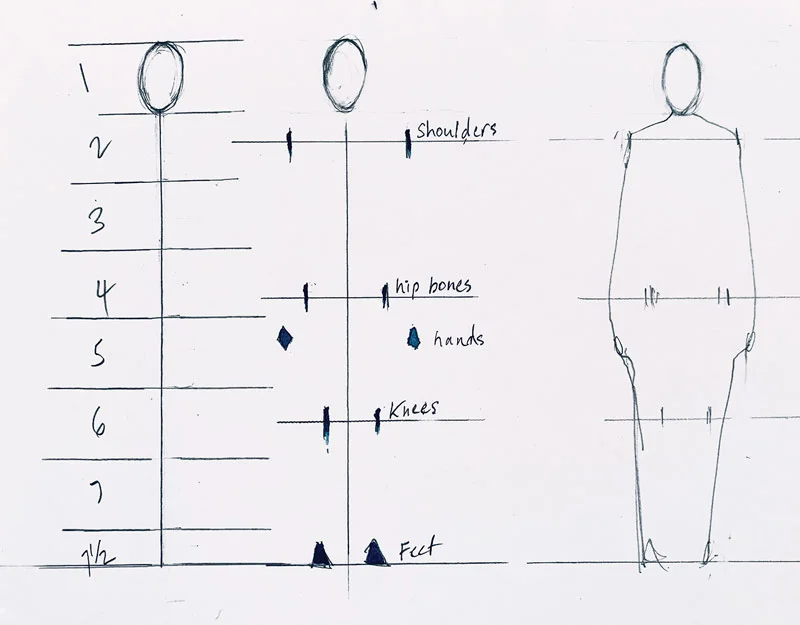 1
2
shoulders
3
4
hip bones
5
hands
6
Knees
7
7 1/2
Feet